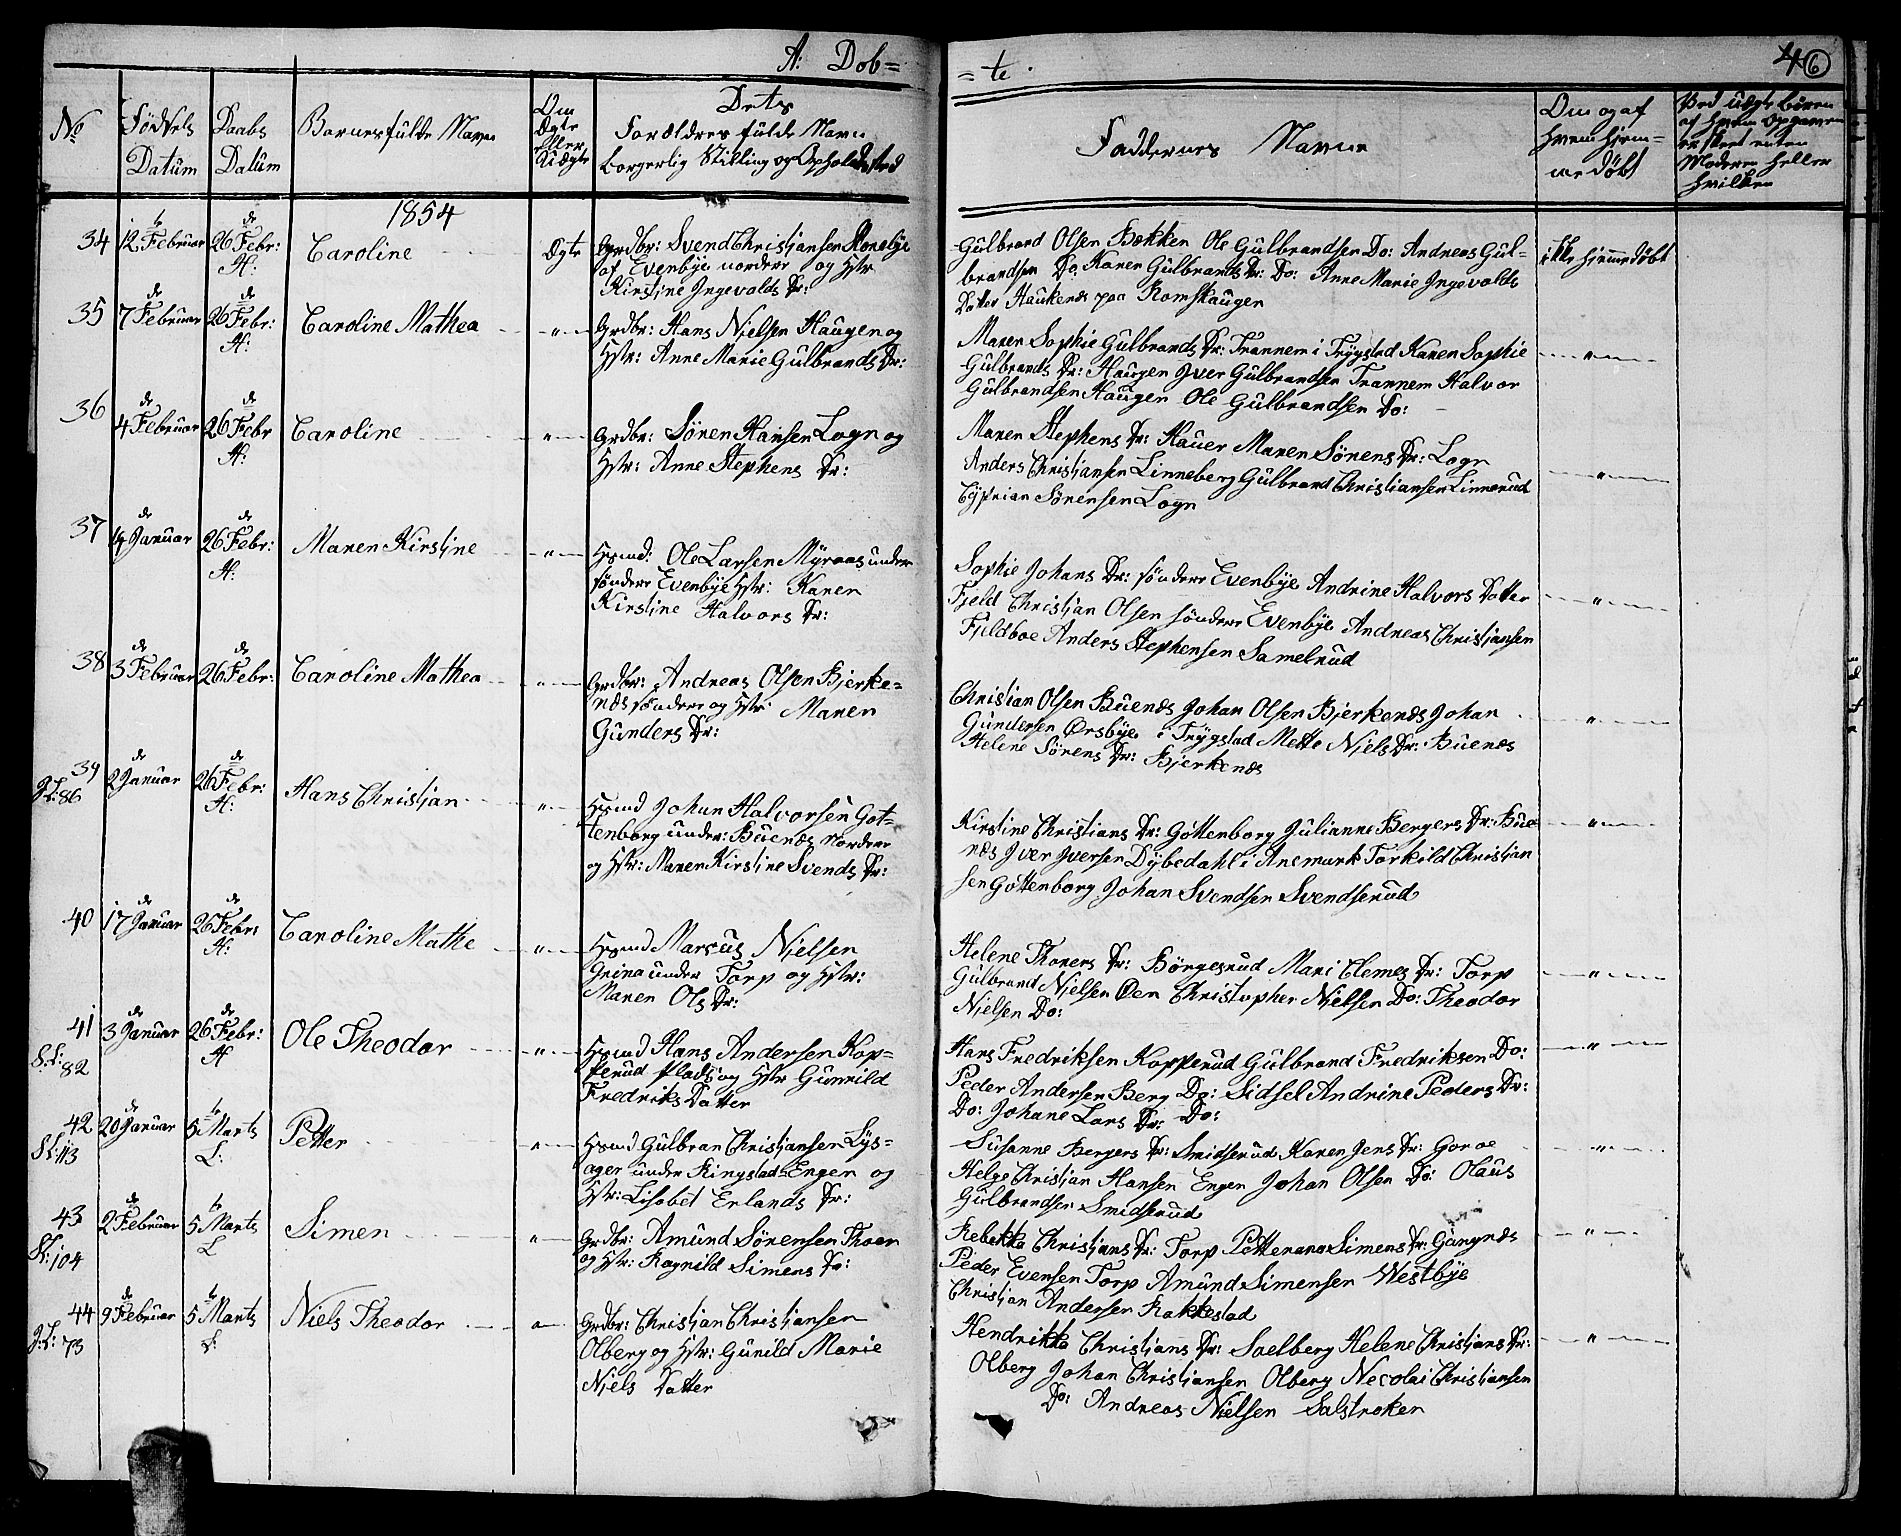 A: Døb=
=te.
4 6
No
Födsels
Datum
Daabs
Datum
Barnes fulde Navn
Om
Ægte
eller
Uægte
Dets
Forældres fulde Navn
borgerlig Stilling og Opholdssted
Faddernes Navne
Om og af
hvem hjem=
me døbt
Ved uægte Børen
af hvem Opgaven
er skeet enten
Moderen heller
hvilken
1854
34 12te Februar 26de Febr: H: Caroline Ægte
Grdbr: Svend Christjansen Ronebye
af Evenbye nordere og Hstr
Kirstine Ingevalds Dr:
Gulbrand Olsen Bækken Ole Gulbrandsen Do: Andreas Gul=
brandsen Do Karen Gulbrands Dr: Do: Anne Marie Ingevalds
Dater Haukenæs paa Romskaugen
ikke hjemmedøbt
35 7de Februar 26de Febr: H: Caroline Mathea — " —
Grdbr: Hans Nielsen Haugen og
Hstr: Anne Marie Gulbrands Dr:
Maren Sophie Gulbrands Dr: Trannem i Trygstad Karen Sophie
Gulbrands Dr: Haugen Iver Gulbrandsen Trannem Halvor
Gulbrandsen Haugen Ole Gulbrandsen Do:
— " —
36 4de Februar 26de Febr H: Caroline — " —
Grdbr: Sören Hansen Logn og
Hstr: Anne Stephens Dr:
Maren Stephens Dr: Hauer Maren Sörens Dr: Logn
Anders Christjansen Linneberg Gulbrand Christiansen Linnerud
Cyprian Sörensen Logn
— " —
37 14de Januar 26de Febr: H: Maren Kirstine — " —
Hsmd: Ole Larsen Myraas under
söndere Evenbye Hstr: Karen
Kirstine Halvors Dr:
Sophie Johans Dr: söndere Evenbye Andrine Halvors Datter
Fjeld Christjan Olsen söndere Evenbye Andreas Christjansen
Fjeldboe Anders Stephensen Samelrud
— " —
38 3de Februar 26de Febr: Caroline Mathea — " —
Grdbr: Andreas Olsen Bjerke=
næs söndere og Hstr: Maren
Gunders Dr:
Christian Olsen Buenæs Johan Olsen Bjerkenæs Johan
Gundersen Ørsbye i Trygstad Mette Niels Dr: Buenæs
Helene Sörens Dr: Bjerkenæs
— " —
39 2de Januar 26de Febr: H: Hans Christjan — " —
86
Hsmd Johan Halvorsen Got=
tenborg under: Buenæs nordere
og Hstr: Maren Kirstine Svends Dr:
Kirstine Christians Dr: Göttenborg Julianne Bergers Dr: Bue=
næs Iver Iversen Dybedahl i Anemark Torkild Christjan
sen Göttenborg Johan Svendsen Svendserud
— " —
40 17de Januar 26de Febr: H: Caroline Mathe — " —
Hsmd Marcus Nielsen
Greina under Torp og Hstr:
Maren Ols Dr:
Helene Thorers Dr: Börgesrud Mari Clemes Dr: Torp
Gulbrand Nielsen Øen Christopher Nielsen Do: Theodor
Nielsen Do:
— " —
41 3de Januar 26de Febr: H Ole Theodor — " —
82
Hsmd Hans Andersen Kop=
perud plads og Hstr Gunnild
Fredriks Datter
Hans Fredriksen Kopperud Gulbrand Fredriksen Do:
Peder Andersen Berg Do: Sidsel Andrine Peders Dr:
Do: Johane Lars Dr: Do:
— " —
42 20de Januar 5te Marts L: Petter — " —
113
Hsmd Gulbran Christjansen Lys=
ager under Ringstad Enger og
Hstr: Lisabet Erlands Dr:
Susanne Bergers Dr: Smidserud Karen Jens Dr: Goroe
Helge Christjan Hansen Engen Johan Olsen Do: Olaus
Gulbrandsen Smidserud
— " —
43 2de Februar 5te Marts L Simen — " —
104
Grdbr: Amund Sörensen Thoen
og Hstr: Ragnild Simens Dr:
Rebekka Christjans Dr: Torp Petterana Simens Dr: Gangnæs
Peder Evensen Torp Amund Simensen Westbye
Christjan Andersen Rakkestad
— " —
44 9de Februar 5te Marts L: Niels Theodor — " —
73
Grdbr: Christjan Christjansen
Olberg og Hstr: Gunild Marie
Njels Datter
Hendrikke Christjans Dr: Soelberg Helene Christjans Dr:
Olberg Johan Christjansen Olberg Necolai Christjansen
Do: Andreas Nielsen Salstroken
— " —